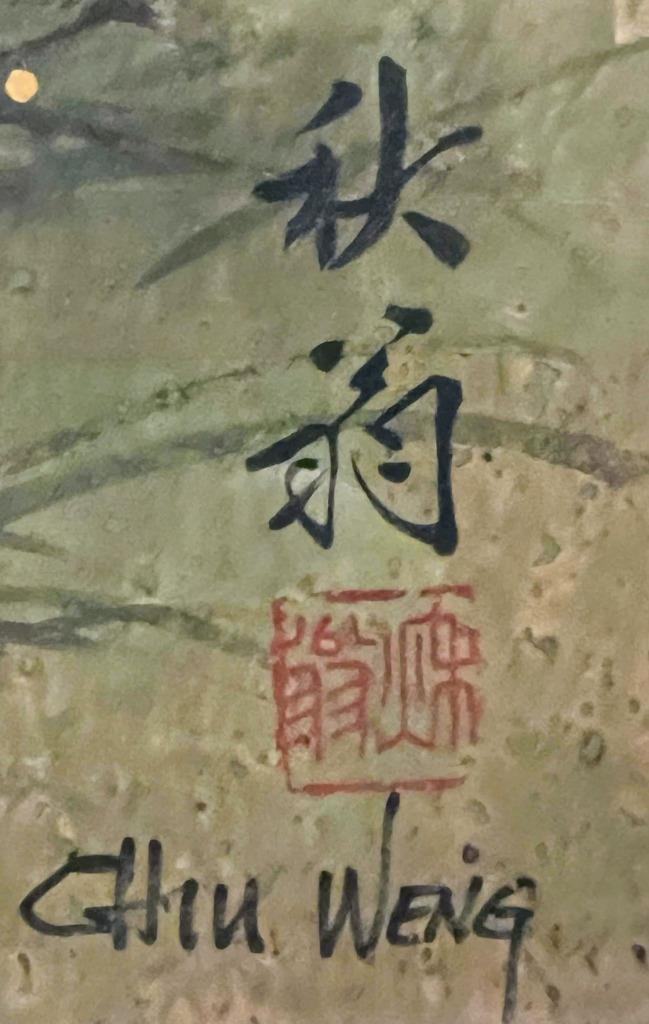 秋
翁
秋翁
CHIU WENG